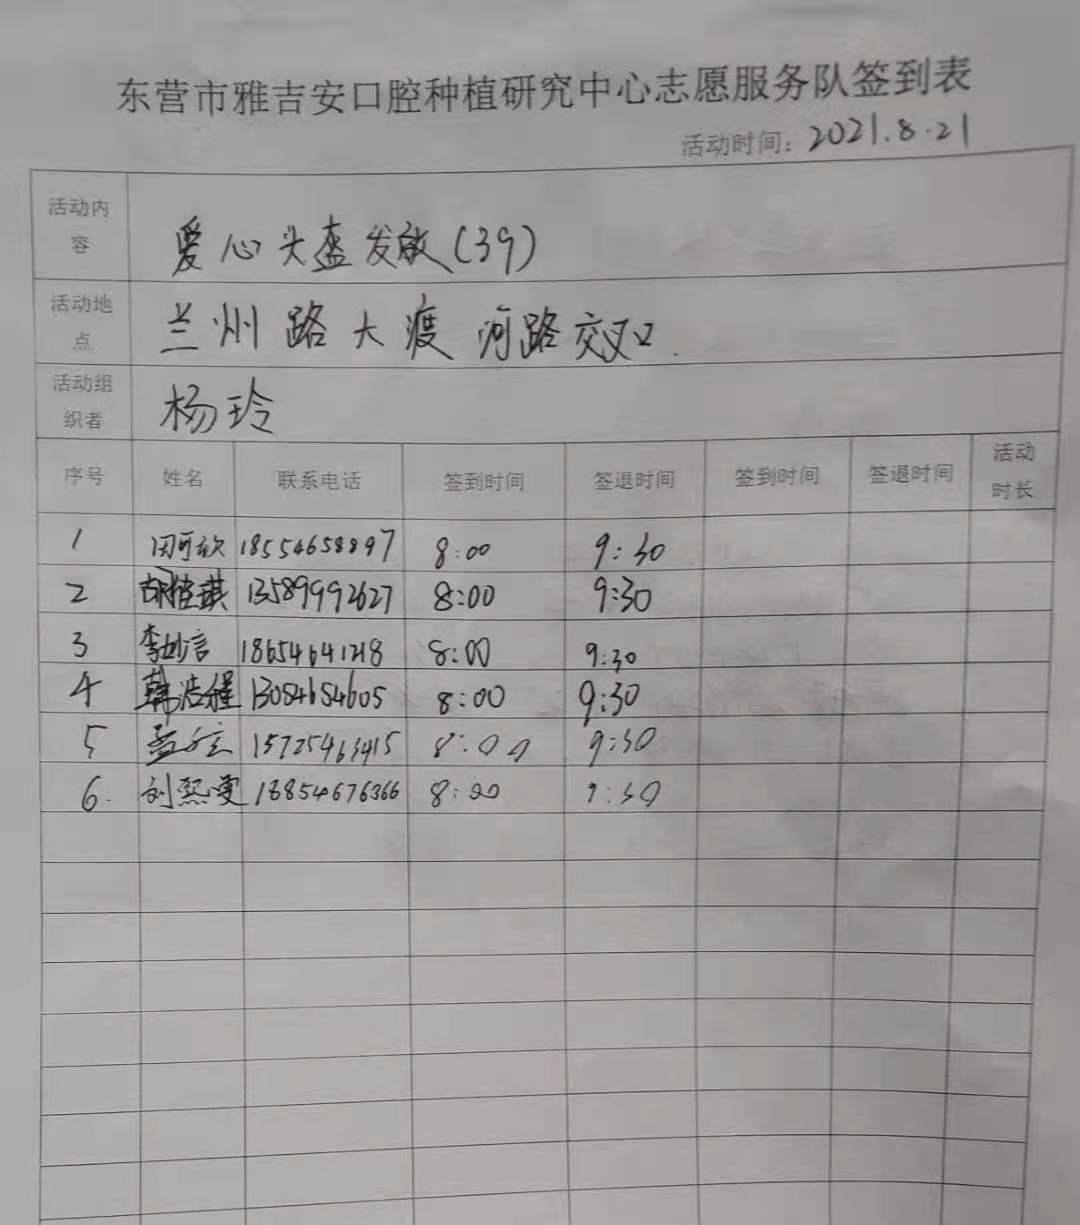 东营市雅吉安口腔种植研究中心志愿服务队签到表
活动时间：2021.8.21
活动内容 爱心头盔发放(39)
活动地点 兰州路大渡河路交叉口.
活动组织者 杨玲
序号 姓名 联系电话 签到时间 签退时间 签到时间 签退时间 活动时长
1 田可欣 18554658897 8:00 9:30
2 胡佳琪 13589992627 8:00 9:30
3 李妙言 18654641218 8:00 9:30
4 韩浩程 13054654605 8:00 9:30
5 孟 15725463415 8:00 9:30
6. 刘熙雯 18854676366 8:00 9:30